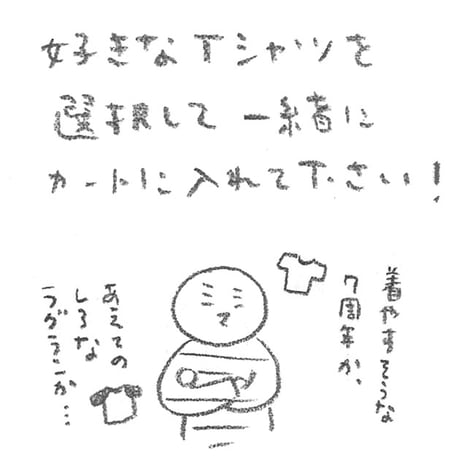 好きなTシャツを
選択して一緒に
カートに入れて下さい！
着やすそうな
7周年か、
あえての
しろな
ラグランか…